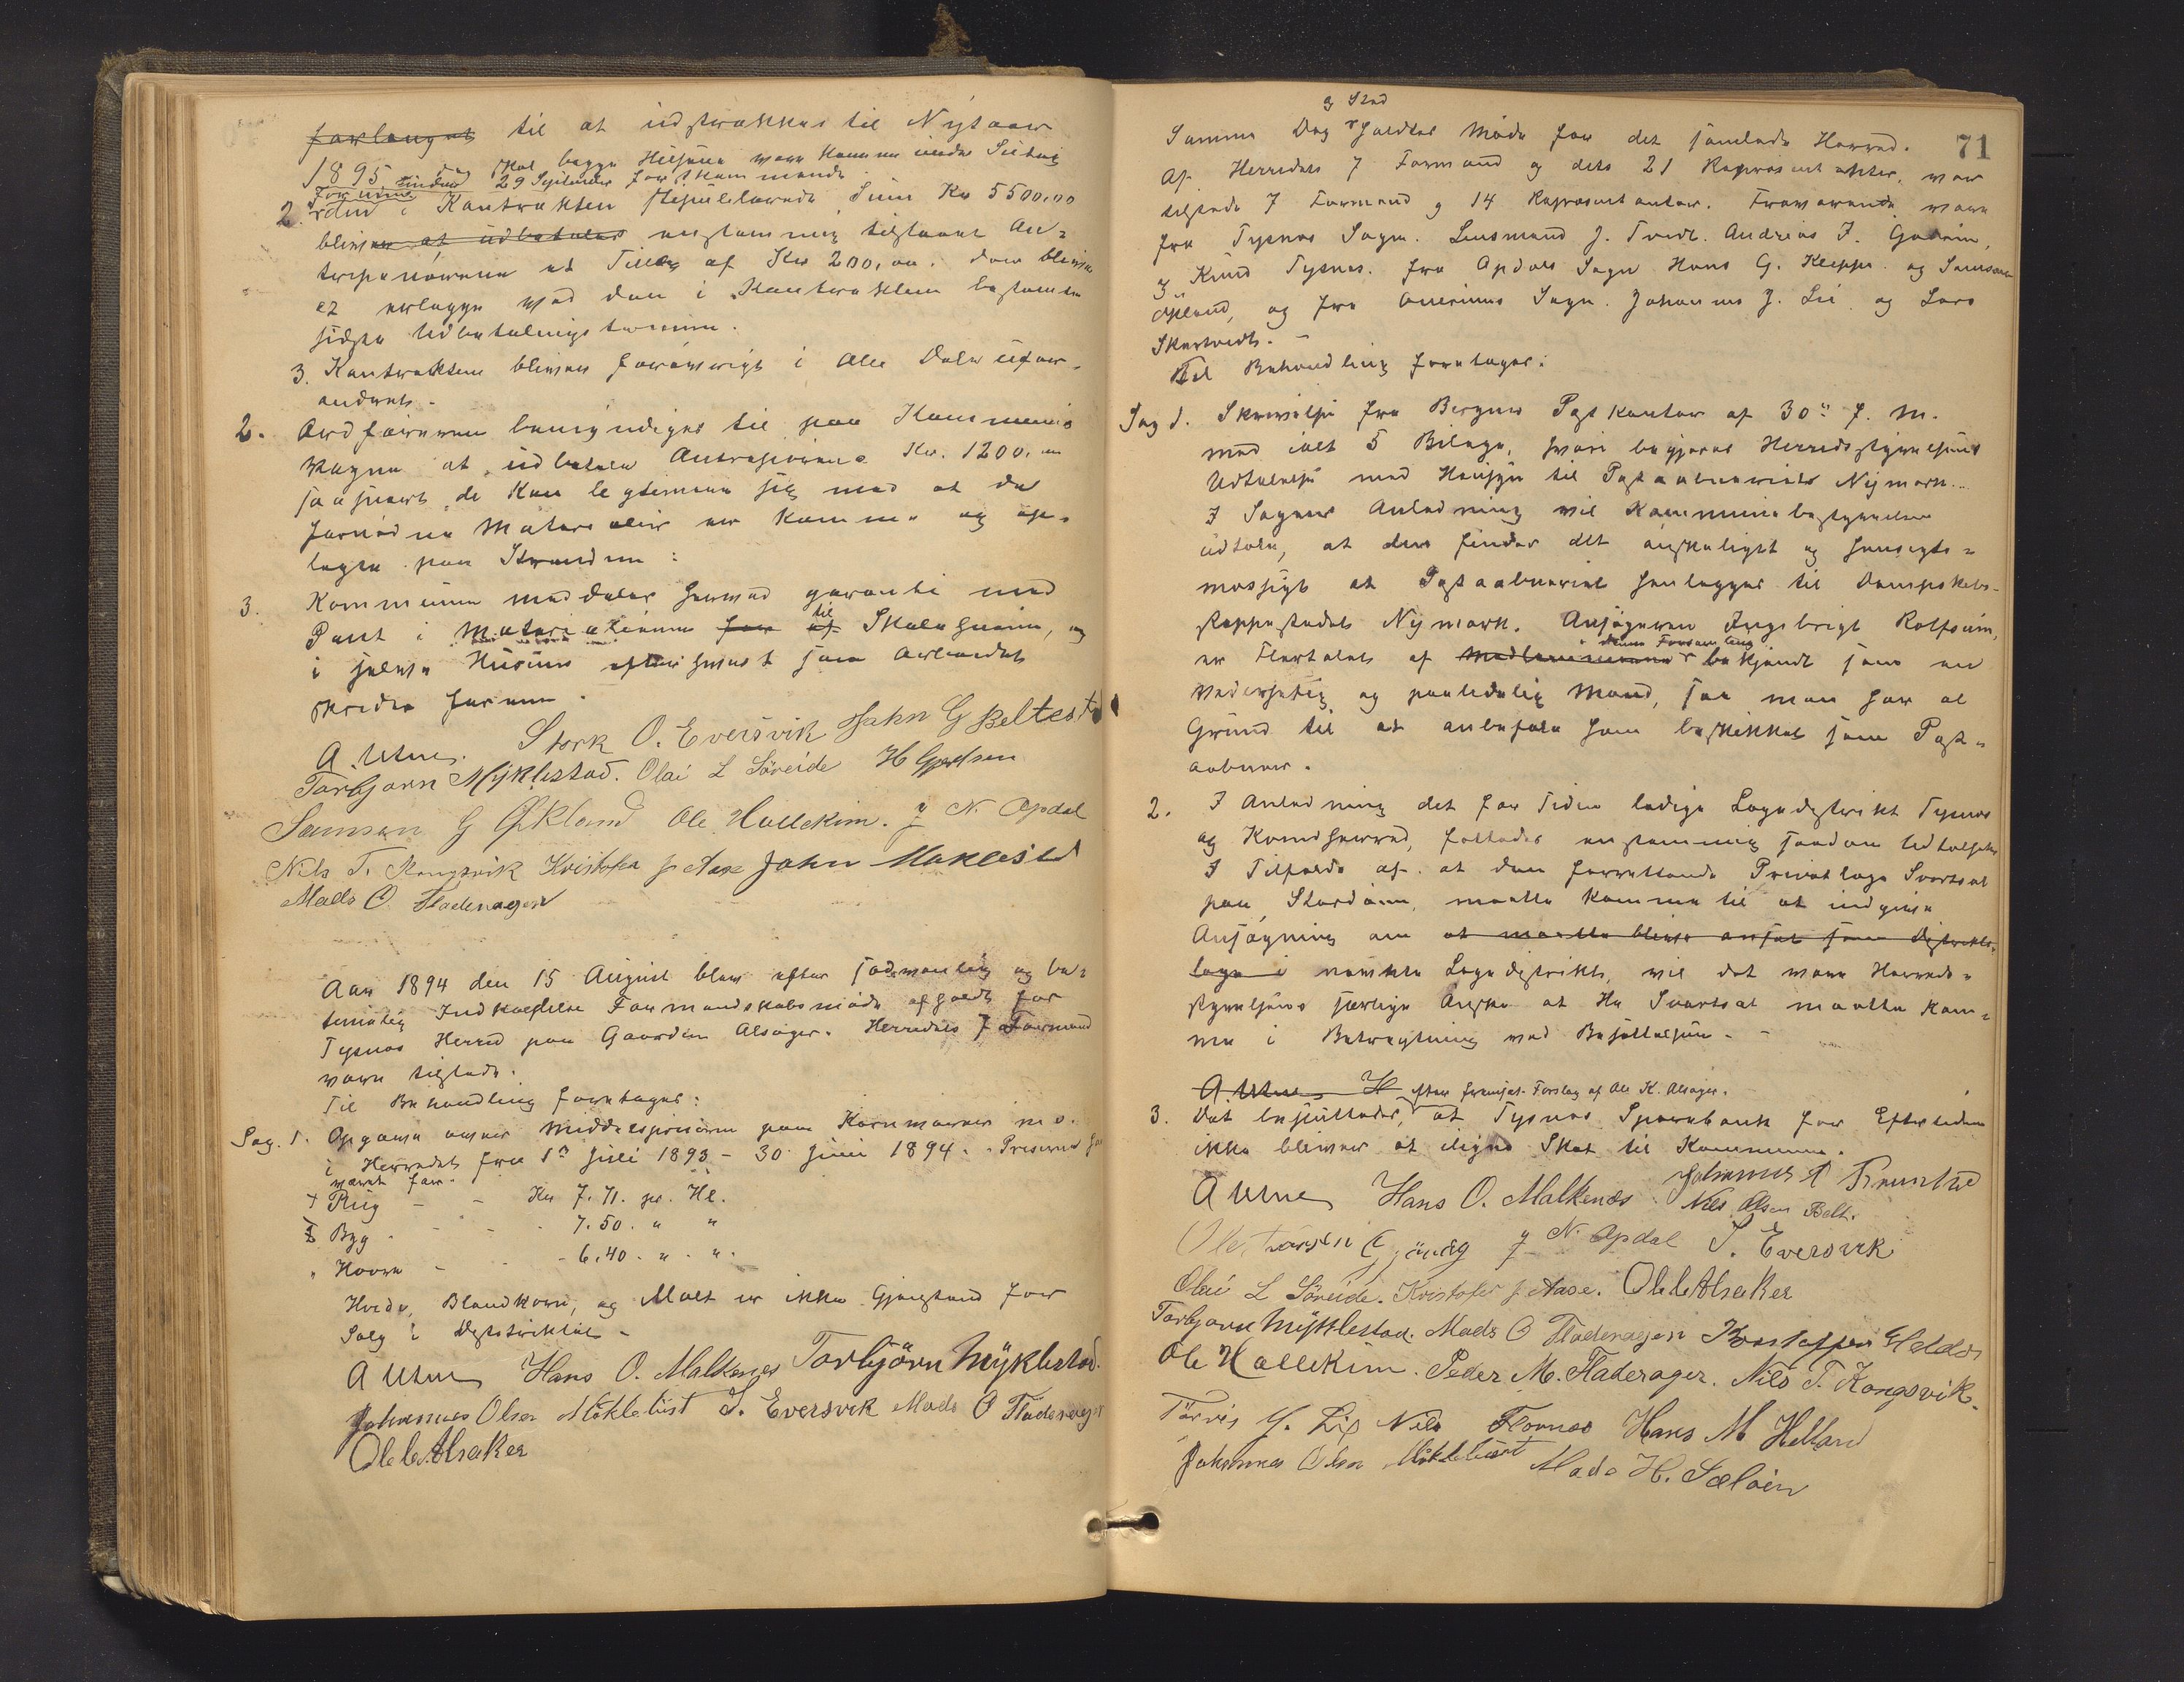 forlanget til at udstrækkes til Nytaar
1895, dog skal begge Husene være komne under Sutag
inden 29 September førstkommende
2. Foruden i Kontrakten stipulerede Sum Kr 5500,00
bliver at udbetales enstemmig tilstaaet An-
treprenørerne et Tillæg af Kr 200,00. den bliver
at erlægge ved den i Kontrakten bestemte
sidste Udbetalingstermin.
3. Kontrakten bliver forøvrigt i alle Dele ufor-
andret.
2. Ordføreren bemyndiges til paa Kommunens
Vegne at udbetale Antreprenørerne Kr. 1200,00
saasnart de kan legitimere sig med at de
fornødne Materialier er komne og op-
lagte paa Stranden:
3. Kommunen meddeler herved garanti med
Pant i Materialierne for af til Skolehusene, og
i selve Husene efterhvert som Arbeidet
skrider fremm.
A. Utne. Stork O. Eversvik John G Beltestad
Torbjørn Myklestad. Olai L Søreide H Gjerdsen
Samson G Økland Ole Hallekim. J N. Opdal
Nils T. Kongsvik Kristofer J Aase John Maklestad
Mads O. Fladerager
Aar 1894 den 15 August blev efter sædvanlig og be-
timelig Indkaldelse Formandskabsmøde afholdt for
Tysnes Herred paa Gaarden Alsager. Herredets 7 Formænd
vare tilstede.
Til Behandling foretages:
Sag. 1. Opgave over Middelspriserne paa Kornvarer m. v.
i Herredet fra 1ste Juli 1893 - 30 Juni 1894. Priserne har
været for.
Rug - - Kr 7.71. pr. Hl.
Byg - - - 7.50. " "
Havre - - - 6.40. " "
Hvede, Blandkorn, og Malt er ikke Gjenstand for
Salg i Distriktet -
A Utne Hans O. Malkenes Torbjørn Myklestad.
Johannes Olsen Møklebust S. Eversvik Mads O Fladerager
Ole C. Alsaker
71
og Sted
Samme Dag holdtes Møde for det samlede Herred.
Af Herredets 7 Formænd og dets 21 Repræsentanter, var
tilstede 7 Formænd og 14 Repræsentanter. Fraværende vare
fra Tysnes Sogn. Lensmand J. Tvedt. Andreas J. Godøen,
og Knud Tysnes. fra Opdals Sogn Hans G. Kleppe og Samson
Økland, og fra Onerims Sogn. Johannes J. Lie og Lars
Skartvedt. -
Til Behandling foretages:
Sag 1. Skrivelse fra Bergens Postkontor af 30te f. M.
med ialt 5 Bilage, hvori begjæres Herredsstyrelsens
Udtalelse med Hensyn til Postaabneriet Nymark..
I Sagens Anledning vil Kommunebestyrelsen
udtale, at den finder det ønskeligst og hensigts-
mæssigt at Postaabneriet henlægges til Dampskibs-
stoppestedet Nymark. Ansøgeren Ingebrigt Rolfsein,
er Flertallet af Medlemmerne i denne Forsamling bekjendt som en
vederheftig og paalidelig Mand, saa man har al
Grund til at anbefale ham beskikket som Post-
aabner.
2. I Anledning det for Tiden ledige Lægedistrikt Tysnes
og Kvindherred, fattedes enstemmig saadan Udtalelse
I Tilfælde af at den forrettende Privatlæge Svartsat
paa Stordøen, maatte komme til at indgive
Ansøgning om at maatte blive ansat som Distrikts-
læge i nævnte Lægedistrikt, vil det være Herreds-
styrelsens særlige Ønske at Hr Svartsat maatte kom-
me i Betragtning ved Besættelsen. -
A. Utne H efter fremsat Forslag af Ole K. Alsager.
3. Det besluttedes, at Tysnes Sparebank for Eftertiden
ikke bliver at iligne Skat til Kommunen.
A Utne Hans O. Malkenes Johannes A
Nils Olsen Belt.
Ole J N. Opdal S. Eversvik
Olai L Søreide. Kristofer J. Aase. Ole C Alsaker
Torbjørn Myklestad. Mads O Fladerager Kristoffer
Ole Hallekim. Peder M. Fladerager. Nils T. Kongsvik.
Torvis G. Lie Nils Flornes Hans M Helland
Johannes Olsen Møklebust Mads H. Sæløen